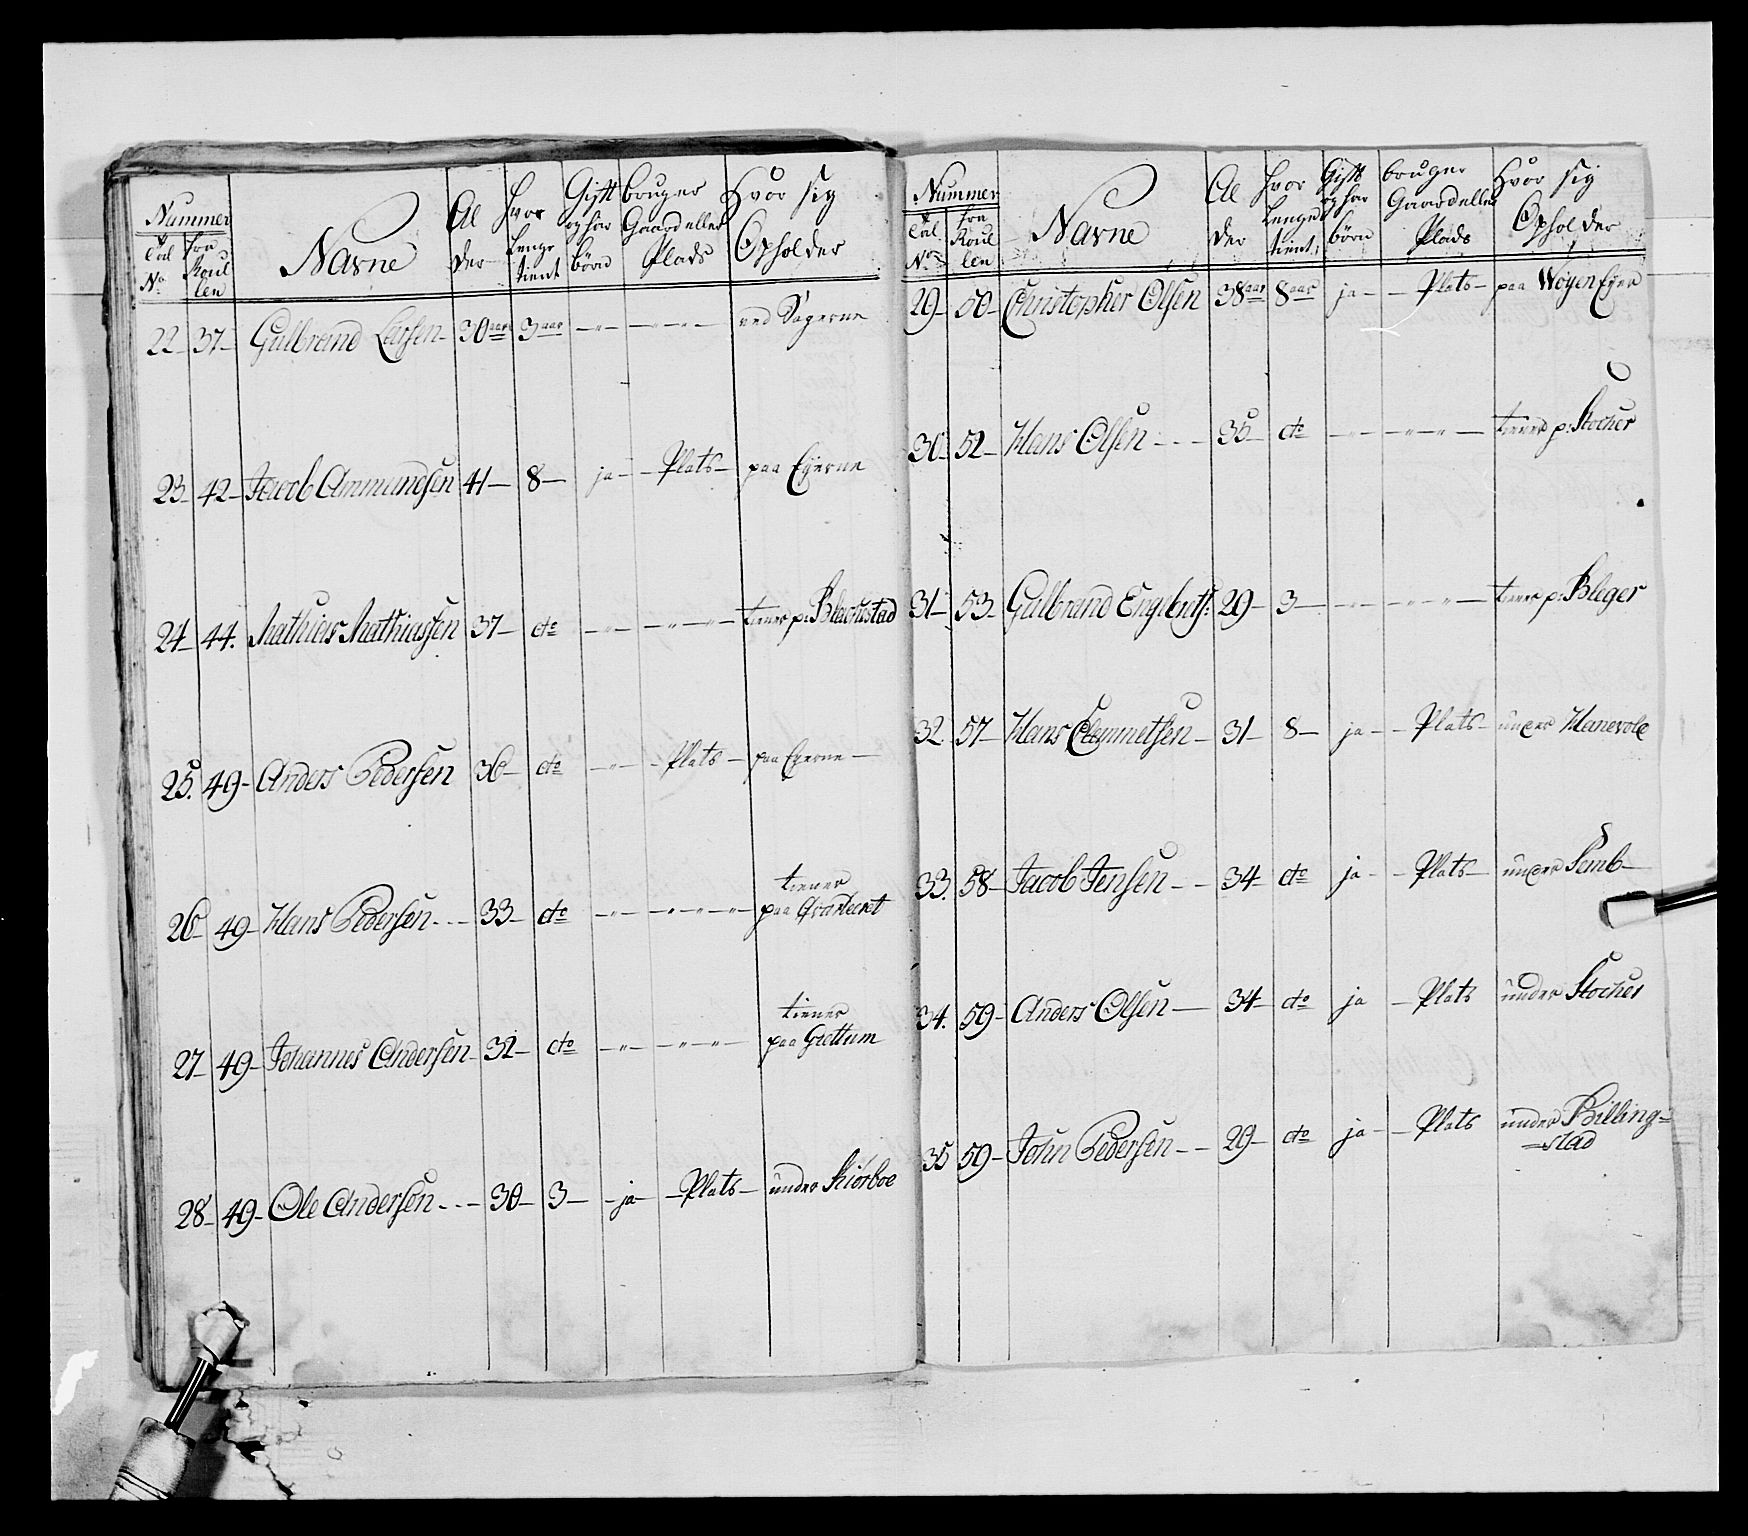 Nummer Navne Al der hvor Lenge tient Gift og har børn bruger Gaard eller Plads Hvor sig Opholder
Tal No fra Roul len
22 37 Gulbrand Larsen 30 aar 3 aar -"- -"-"- ved Sagerne
23 42 Jacob Ammundsen 41 8 ja Plats paa Eyerne
24 44. Mathias Mathiassen 37 do -"- -"-"- tiener p: Blachestad
25. 49 Anders Pedersen 36 do -"- Plats paa Eyerne
26 49 Hans Pedersen 33 do -"- -"-"- tiener
paa
27 49 Johannes Andersen 32 do -"- -"-"- tiener
paa Grettum
28 49 Ole Andersen 30 3 ja Plats under Kiørboe
Nummer Navne Al der hvor Lenge tient: Gift og har børn bruger Gaard eller Plads Hvor sig Opholder
Tal No fra Roul len
29 50 Christopher Olsen 38 aar 8 aar ja Plats paa Wøyen Eyer
30 52 Hans Olsen 35 do -"- -"-"- tiener p: Stocher
31 53 Gulbrand Engebrets: 29 3 -"- -"-"- tiener p: Bleger
32 57 Hans Clemmetsen 31 8 ja Plats under Hanevole
33. 58 Jacob Jensen 34 do ja Plats under Semb
34. 59 Anders Olsen 34 do ja Plats under Stocher
35 59 John Pedersen 29 do ja Plats under Billing=
=stad